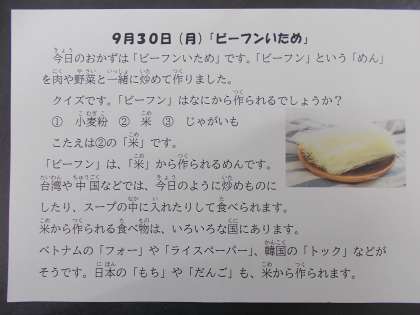 9月30日（月）「ビーフンいため」
今日のおかずは「ビーフンいため」です。「ビーフン」という「めん」
を肉や野菜と一緒に炒めて作りました。
クイズです。「ビーフン」はなにから作られるでしょうか？
① 小麦粉 ② 米 ③ じゃがいも
こたえは②の「米」です。
「ビーフン」は、「米」から作られるめんです。
台湾や中国などでは、今日のように炒めものに
したり、スープの中に入れたりして食べられます。
米から作られる食べ物は、いろいろな国にあります。
ベトナムの「フォー」や「ライスペーパー」、韓国の「トック」などが
そうです。日本の「もち」や「だんご」も、米から作られます。